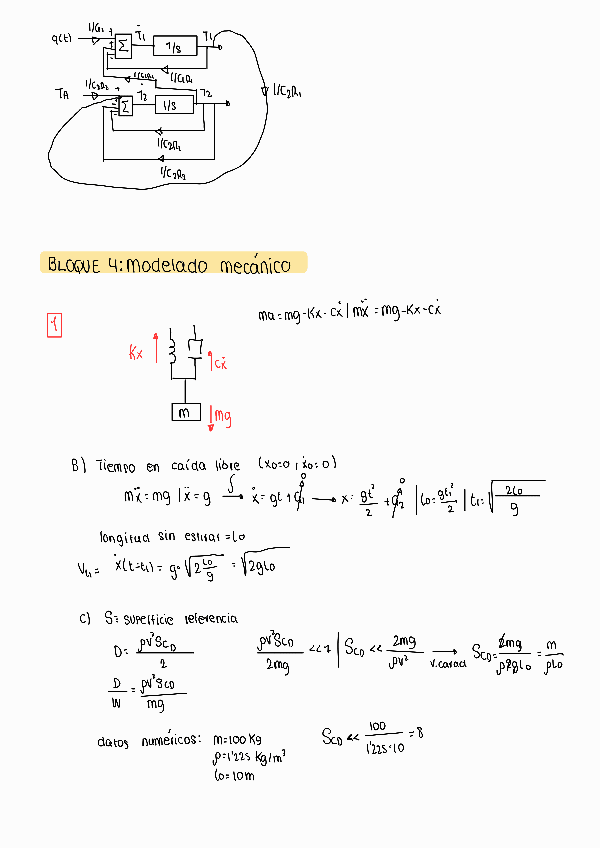 q(t) 1/C₁ + Σ Ṫ₁ 1/s T₁
1/C₁R₁
1/C₁R₁
1/C₂R₁
TA 1/C₂R₂ + Σ Ṫ₂ 1/s T₂
1/C₂R₁
1/C₂R₂
BLOQUE 4: modelado mecánico
1
ma = mg - Kx - cẋ | mẍ = mg - Kx - cẋ
Kx
cẋ
m
mg
B) Tiempo en caída libre (x₀=0, ẋ₀=0)
mẍ = mg | ẍ = g ∫→ ẋ = gt + C₁ 0 → x = gt²/2 + C₂ 0 | l₀ = gt₁²/2 | t₁ = √(2l₀/g)
longitud sin estirar = l₀
Vt₁ = ẋ(t=t₁) = g·√(2 l₀/g) = √(2gl₀)
C) S = superficie referencia
D = ρv²SCD/2
ρv²SCD/2mg << 1 | SCD << 2mg/ρv² → v.caract SCD = 2mg/ρ2gl₀ = m/ρl₀
D/W = ρv²SCD/mg
datos numéricos: m=100 Kg
SCD << 100/1'225·10 = 8
ρ=1'225 Kg/m³
l₀=10m